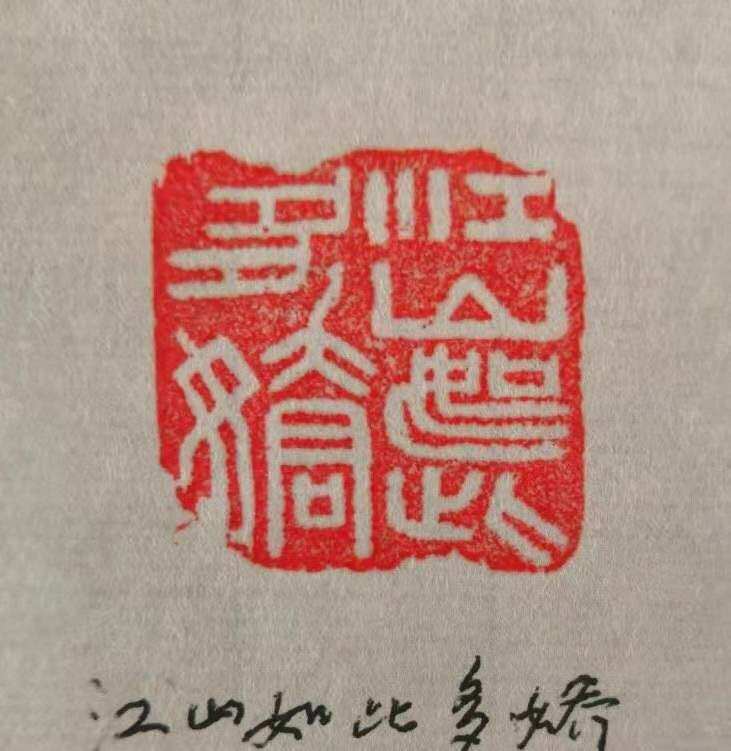 江山如此
多娇
江山如此多娇